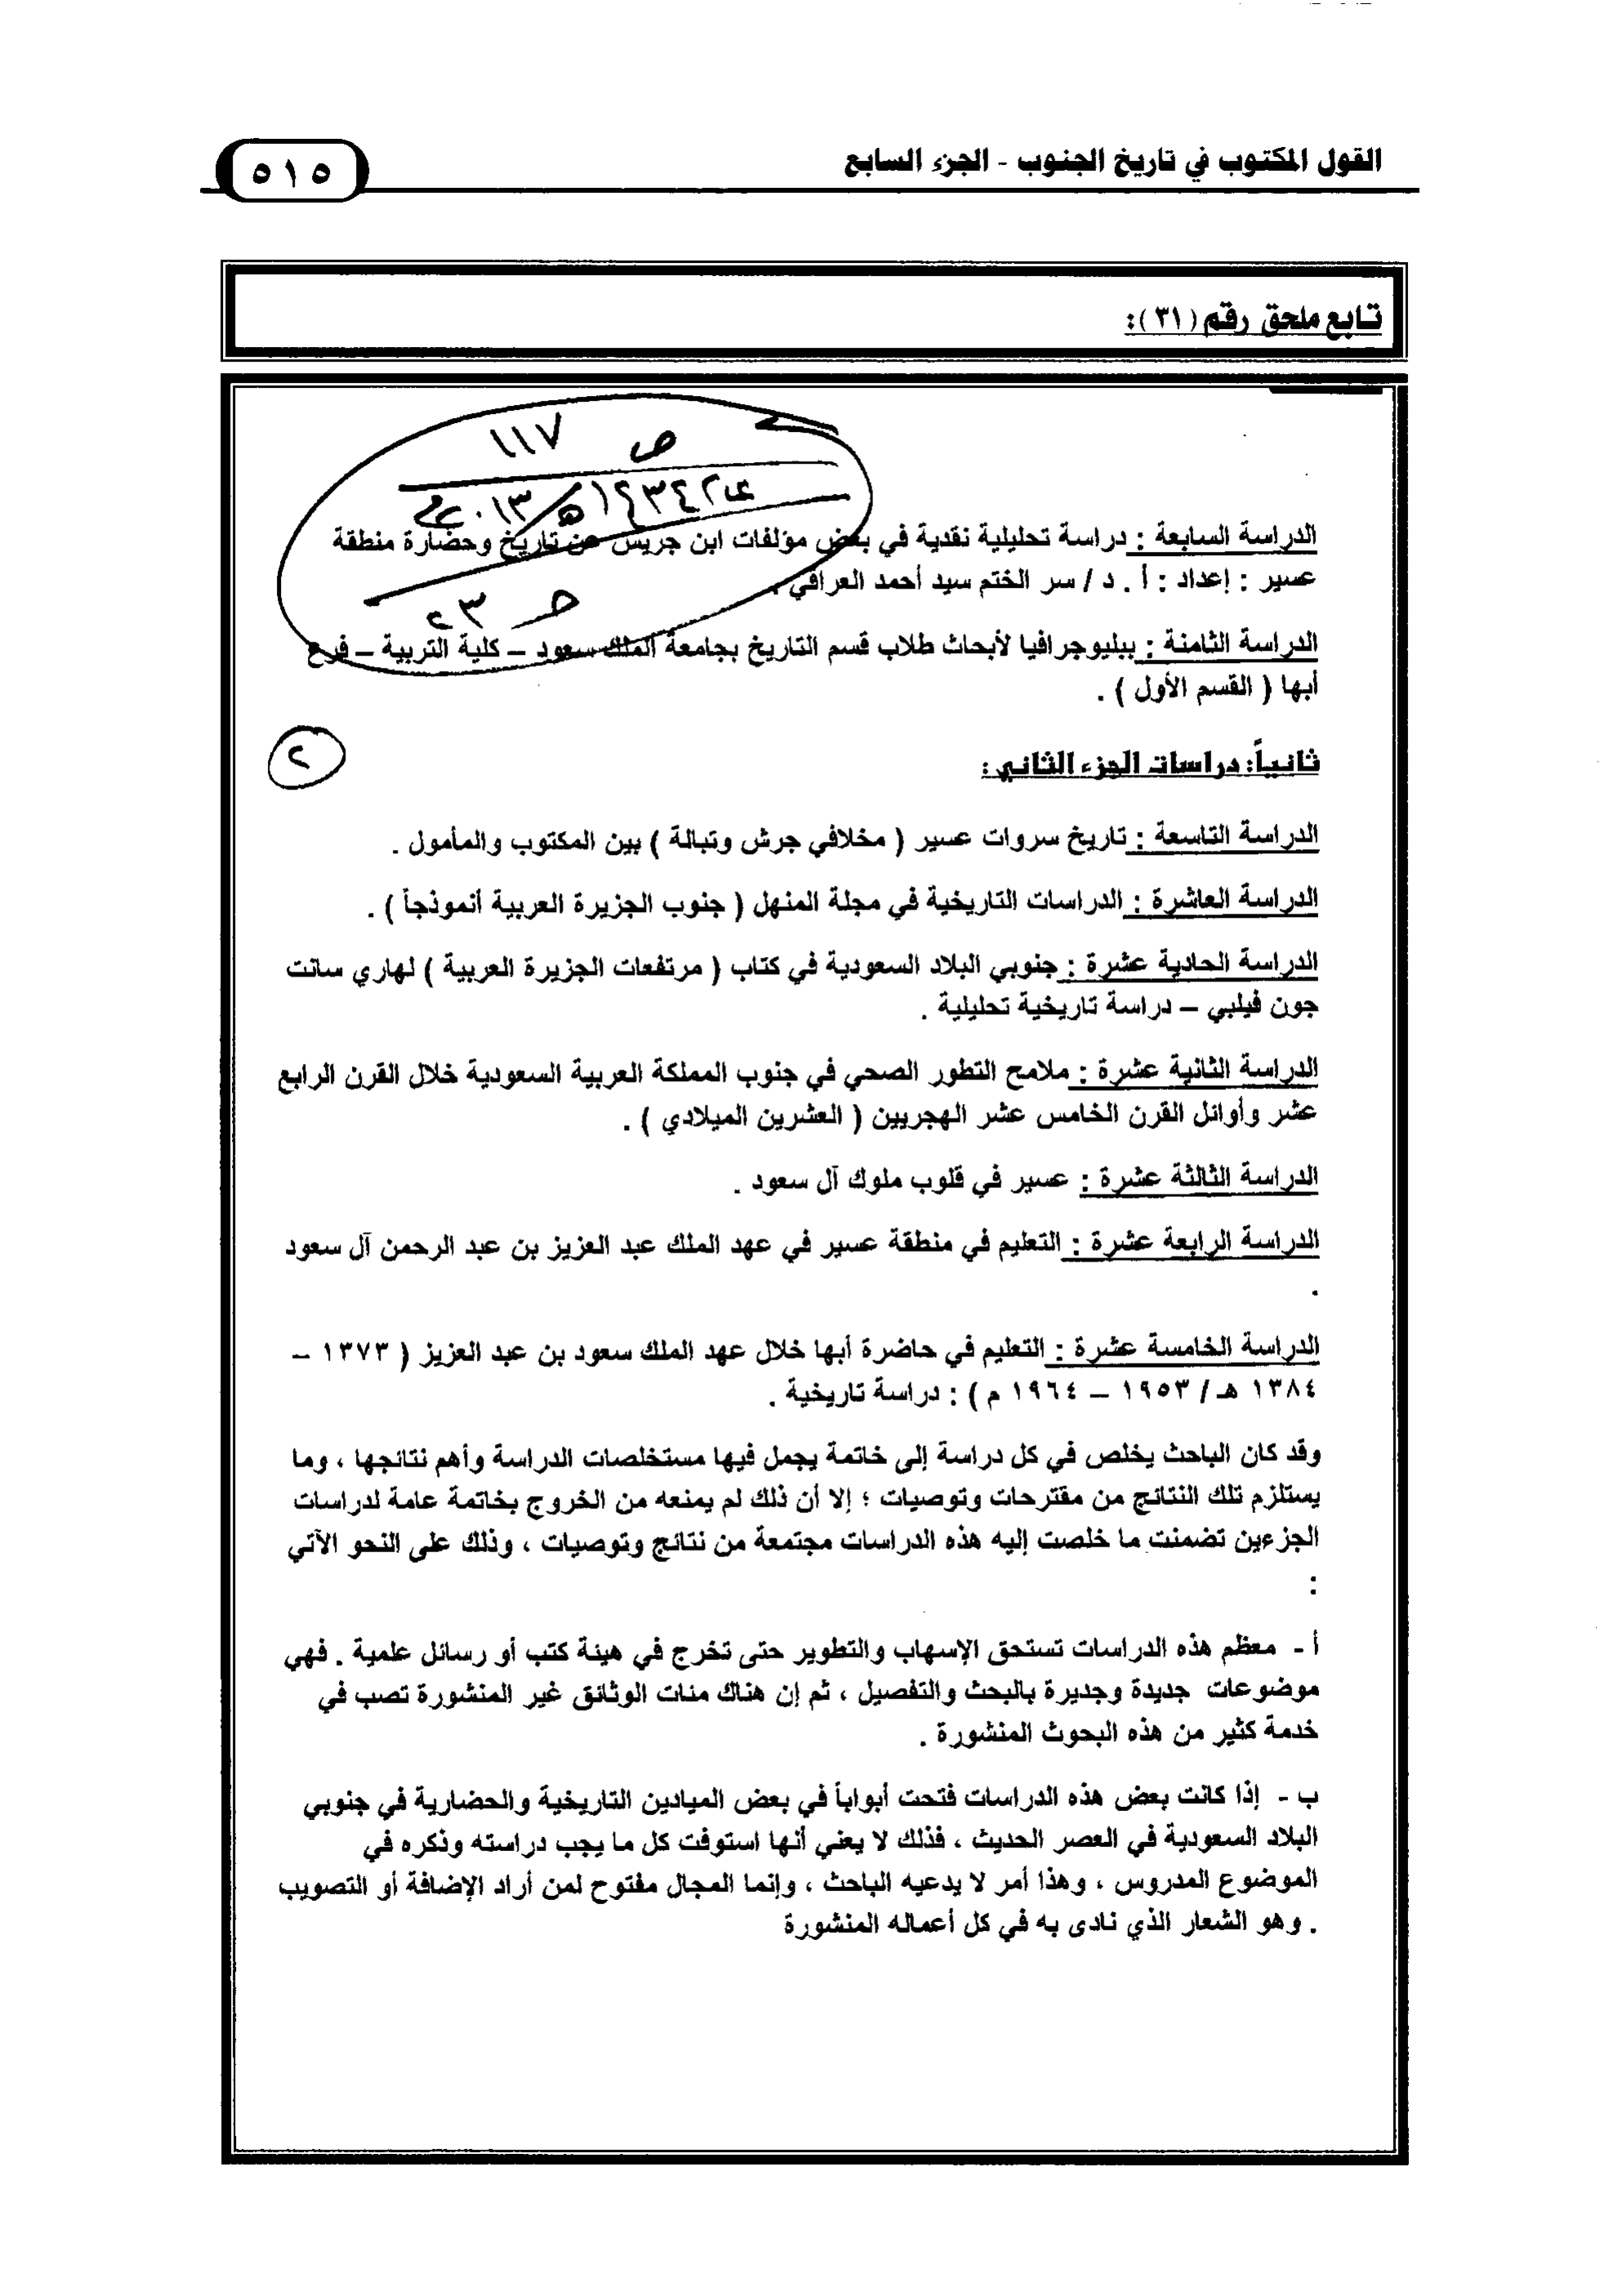 القول المكتوب في تاريخ الجنوب - الجزء السابع
٥١٥
تابع ملحق رقم (٣١):
ص ١١٧
١٤٣٤هـ/٢٠١٣م
٢٣
الدراسة السابعة : دراسة تحليلية نقدية في بعض مؤلفات ابن جريس عن تاريخ وحضارة منطقة
عسير : إعداد : أ . د / سر الختم سيد أحمد العراقي .
الدراسة الثامنة : ببليوجرافيا لأبحاث طلاب قسم التاريخ بجامعة الملك سعود – كلية التربية – فرع
أبها ( القسم الأول ) .
٢
ثانياً: دراسات الجزء الثاني:
الدراسة التاسعة : تاريخ سروات عسير ( مخلافي جرش وتبالة ) بين المكتوب والمأمول .
الدراسة العاشرة : الدراسات التاريخية في مجلة المنهل ( جنوب الجزيرة العربية أنموذجاً ) .
الدراسة الحادية عشرة : جنوبي البلاد السعودية في كتاب ( مرتفعات الجزيرة العربية ) لهاري سانت
جون فيلبي – دراسة تاريخية تحليلية .
الدراسة الثانية عشرة : ملامح التطور الصحي في جنوب المملكة العربية السعودية خلال القرن الرابع
عشر وأوائل القرن الخامس عشر الهجريين ( العشرين الميلادي ) .
الدراسة الثالثة عشرة : عسير في قلوب ملوك آل سعود .
الدراسة الرابعة عشرة : التعليم في منطقة عسير في عهد الملك عبد العزيز بن عبد الرحمن آل سعود
.
الدراسة الخامسة عشرة : التعليم في حاضرة أبها خلال عهد الملك سعود بن عبد العزيز ( ١٣٧٣ –
١٣٨٤ هـ / ١٩٥٣ – ١٩٦٤ م ) : دراسة تاريخية .
وقد كان الباحث يخلص في كل دراسة إلى خاتمة يجمل فيها مستخلصات الدراسة وأهم نتائجها ، وما
يستلزم تلك النتائج من مقترحات وتوصيات ؛ إلا أن ذلك لم يمنعه من الخروج بخاتمة عامة لدراسات
الجزءين تضمنت ما خلصت إليه هذه الدراسات مجتمعة من نتائج وتوصيات ، وذلك على النحو الآتي
:
أ - معظم هذه الدراسات تستحق الإسهاب والتطوير حتى تخرج في هيئة كتب أو رسائل علمية . فهي
موضوعات جديدة وجديرة بالبحث والتفصيل ، ثم إن هناك مئات الوثائق غير المنشورة تصب في
خدمة كثير من هذه البحوث المنشورة .
ب - إذا كانت بعض هذه الدراسات فتحت أبواباً في بعض الميادين التاريخية والحضارية في جنوبي
البلاد السعودية في العصر الحديث ، فذلك لا يعني أنها استوفت كل ما يجب دراسته وذكره في
الموضوع المدروس ، وهذا أمر لا يدعيه الباحث ، وإنما المجال مفتوح لمن أراد الإضافة أو التصويب
. وهو الشعار الذي نادى به في كل أعماله المنشورة